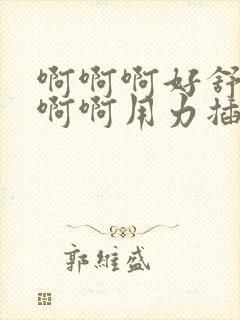 啊啊啊好舒
啊啊用力插
郭維盛